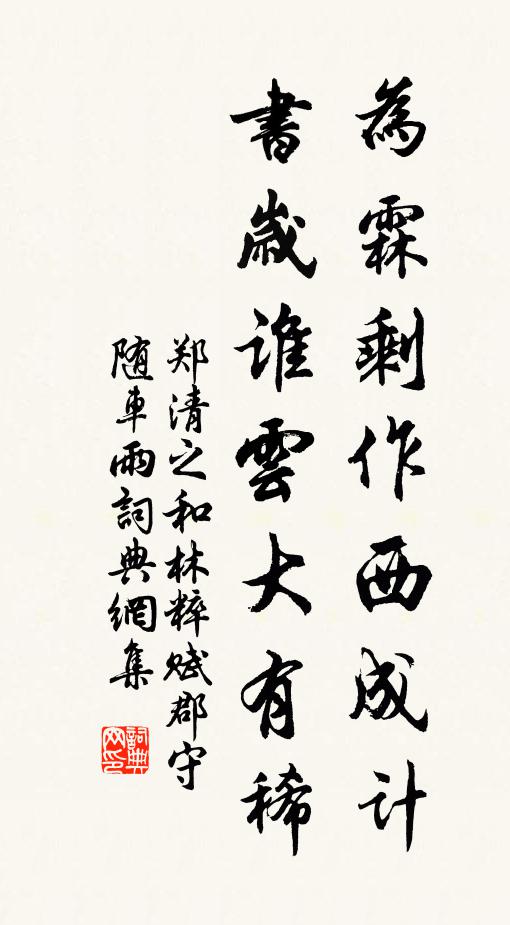 為霖剩作西成計
書歲誰雲大有稀
郑清之和林粹赋郡守
随車雨詞典網集
詞典网印